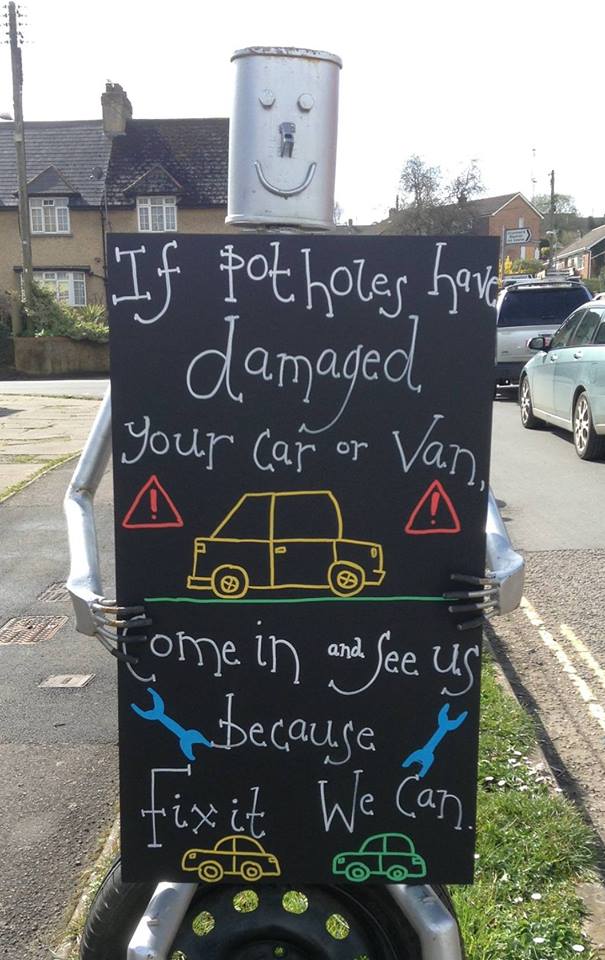 If Potholes have
damaged
your Car or Van,
Come in and See us
because
Fix it We Can.